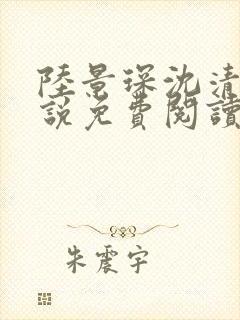 陸景琛沈清
說免費閱讀
朱震宇